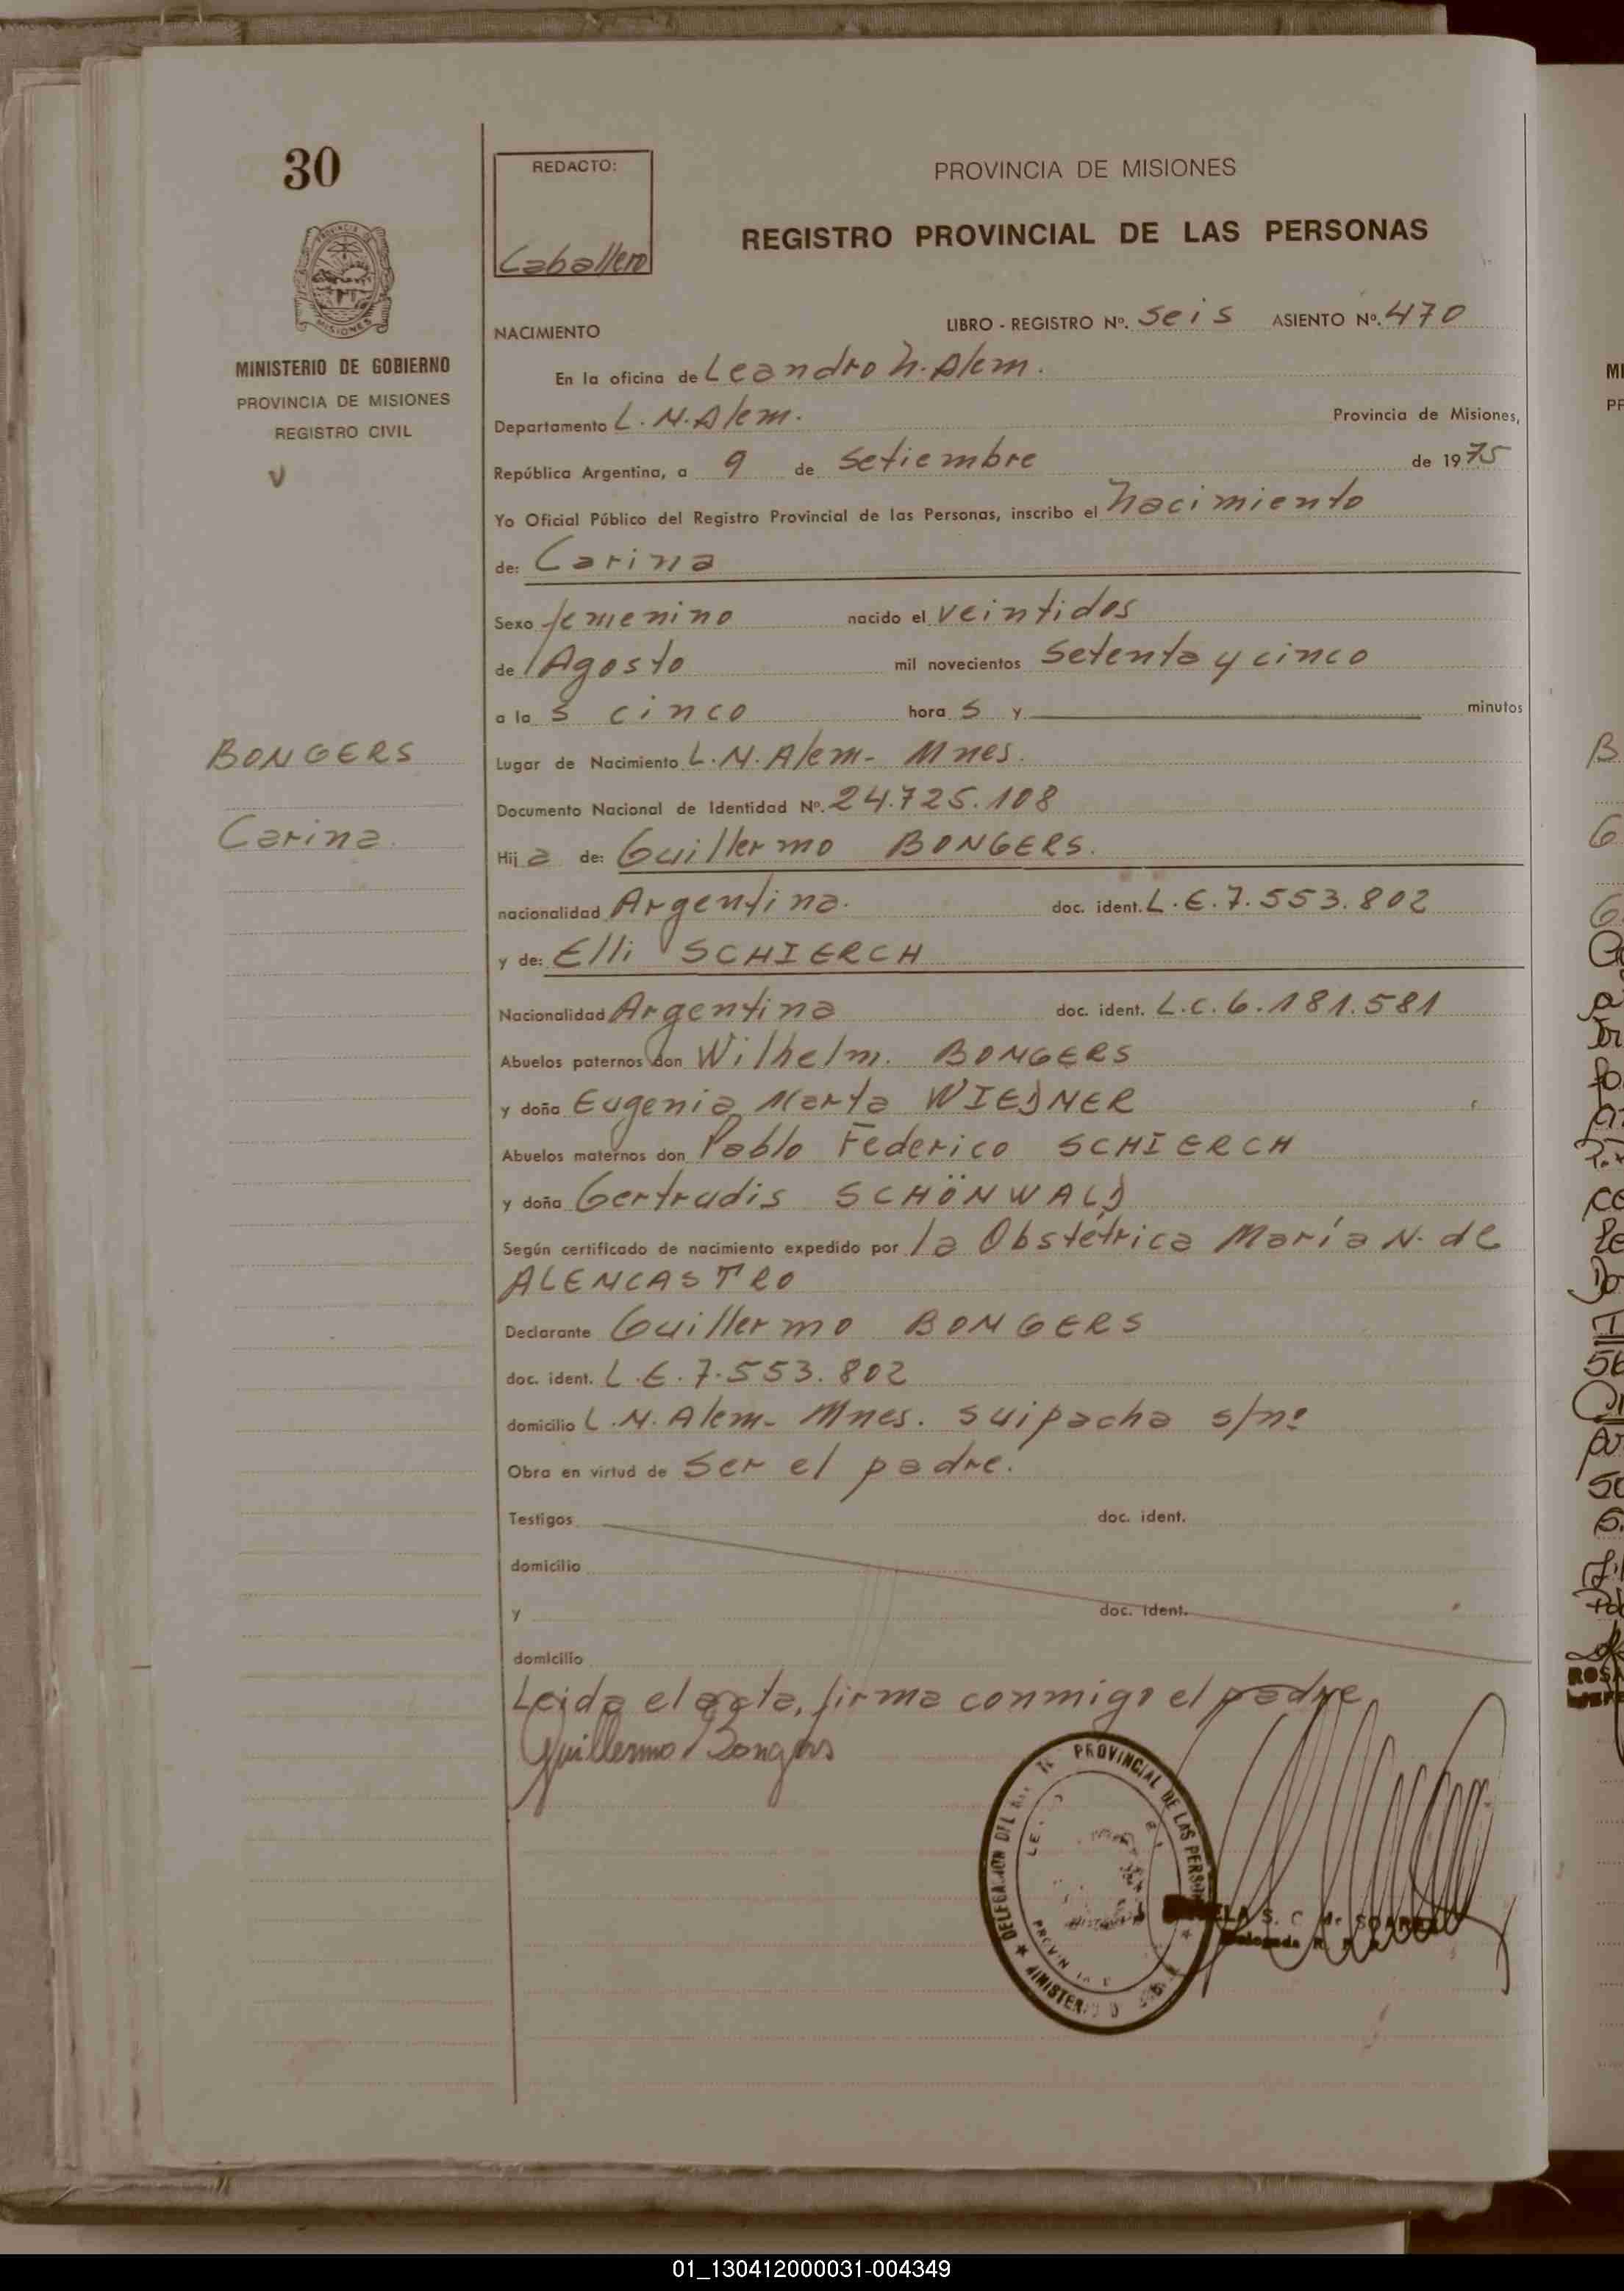 30
REDACTO:
Caballero
PROVINCIA DE MISIONES
REGISTRO PROVINCIAL DE LAS PERSONAS
PROVINCIA DE
MISIONES
MINISTERIO DE GOBIERNO
PROVINCIA DE MISIONES
REGISTRO CIVIL
NACIMIENTO LIBRO - REGISTRO Nº. Seis ASIENTO Nº. 470
En la oficina de Leandro N. Alem.
Departamento L. N. Alem. Provincia de Misiones,
República Argentina, a 9 de Setiembre de 1975
Yo Oficial Público del Registro Provincial de las Personas, inscribo el Nacimiento
de: Carina
Sexo femenino nacido el veintidos
de Agosto mil novecientos Setenta y cinco
a la s cinco hora s y minutos
BONGERS
Carina.
Lugar de Nacimiento L. N. Alem - Mnes.
Documento Nacional de Identidad Nº. 24.725.108
Hij a de: Guillermo BONGERS.
nacionalidad Argentina. doc. ident. L.E. 7.553.802
y de: Elli SCHIERCH
Nacionalidad Argentina doc. ident. L.C. 6.181.581
Abuelos paternos don Wilhelm. BONGERS
y doña Eugenia Marta WIEDNER
Abuelos maternos don Pablo Federico SCHIERCH
y doña Gertrudis SCHÖNWALD
Según certificado de nacimiento expedido por la Obstétrica María N. de
ALENCASTRO
Declarante Guillermo BONGERS
doc. ident. L.E. 7.553.802
domicilio L. N. Alem - Mnes. Suipacha s/nº
Obra en virtud de Ser el padre.
Testigos doc. ident.
domicilio
y doc. ident.
domicilio
Leida el acta, firma conmigo el padre
Guillermo Bongers
PROVINCIAL DE LAS
01_130412000031-004349